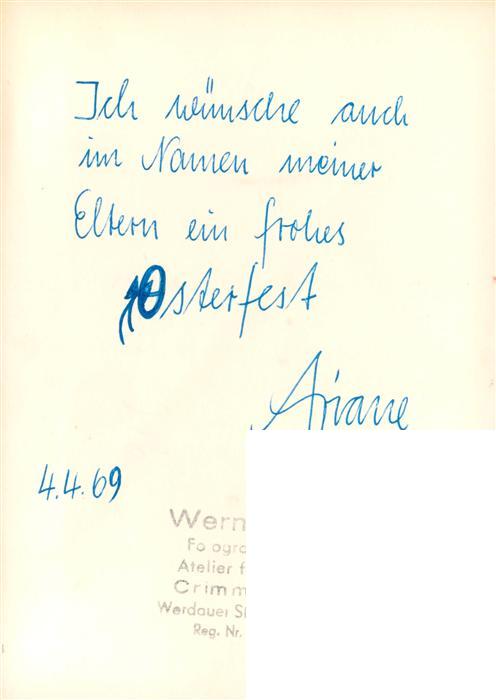 Ich wünsche auch
im Namen meiner
Eltern ein frohes
Osterfest
Ariane
4.4.69
Wern
Fotogra
Atelier f
Crimm
Werdauer St
Reg. Nr.